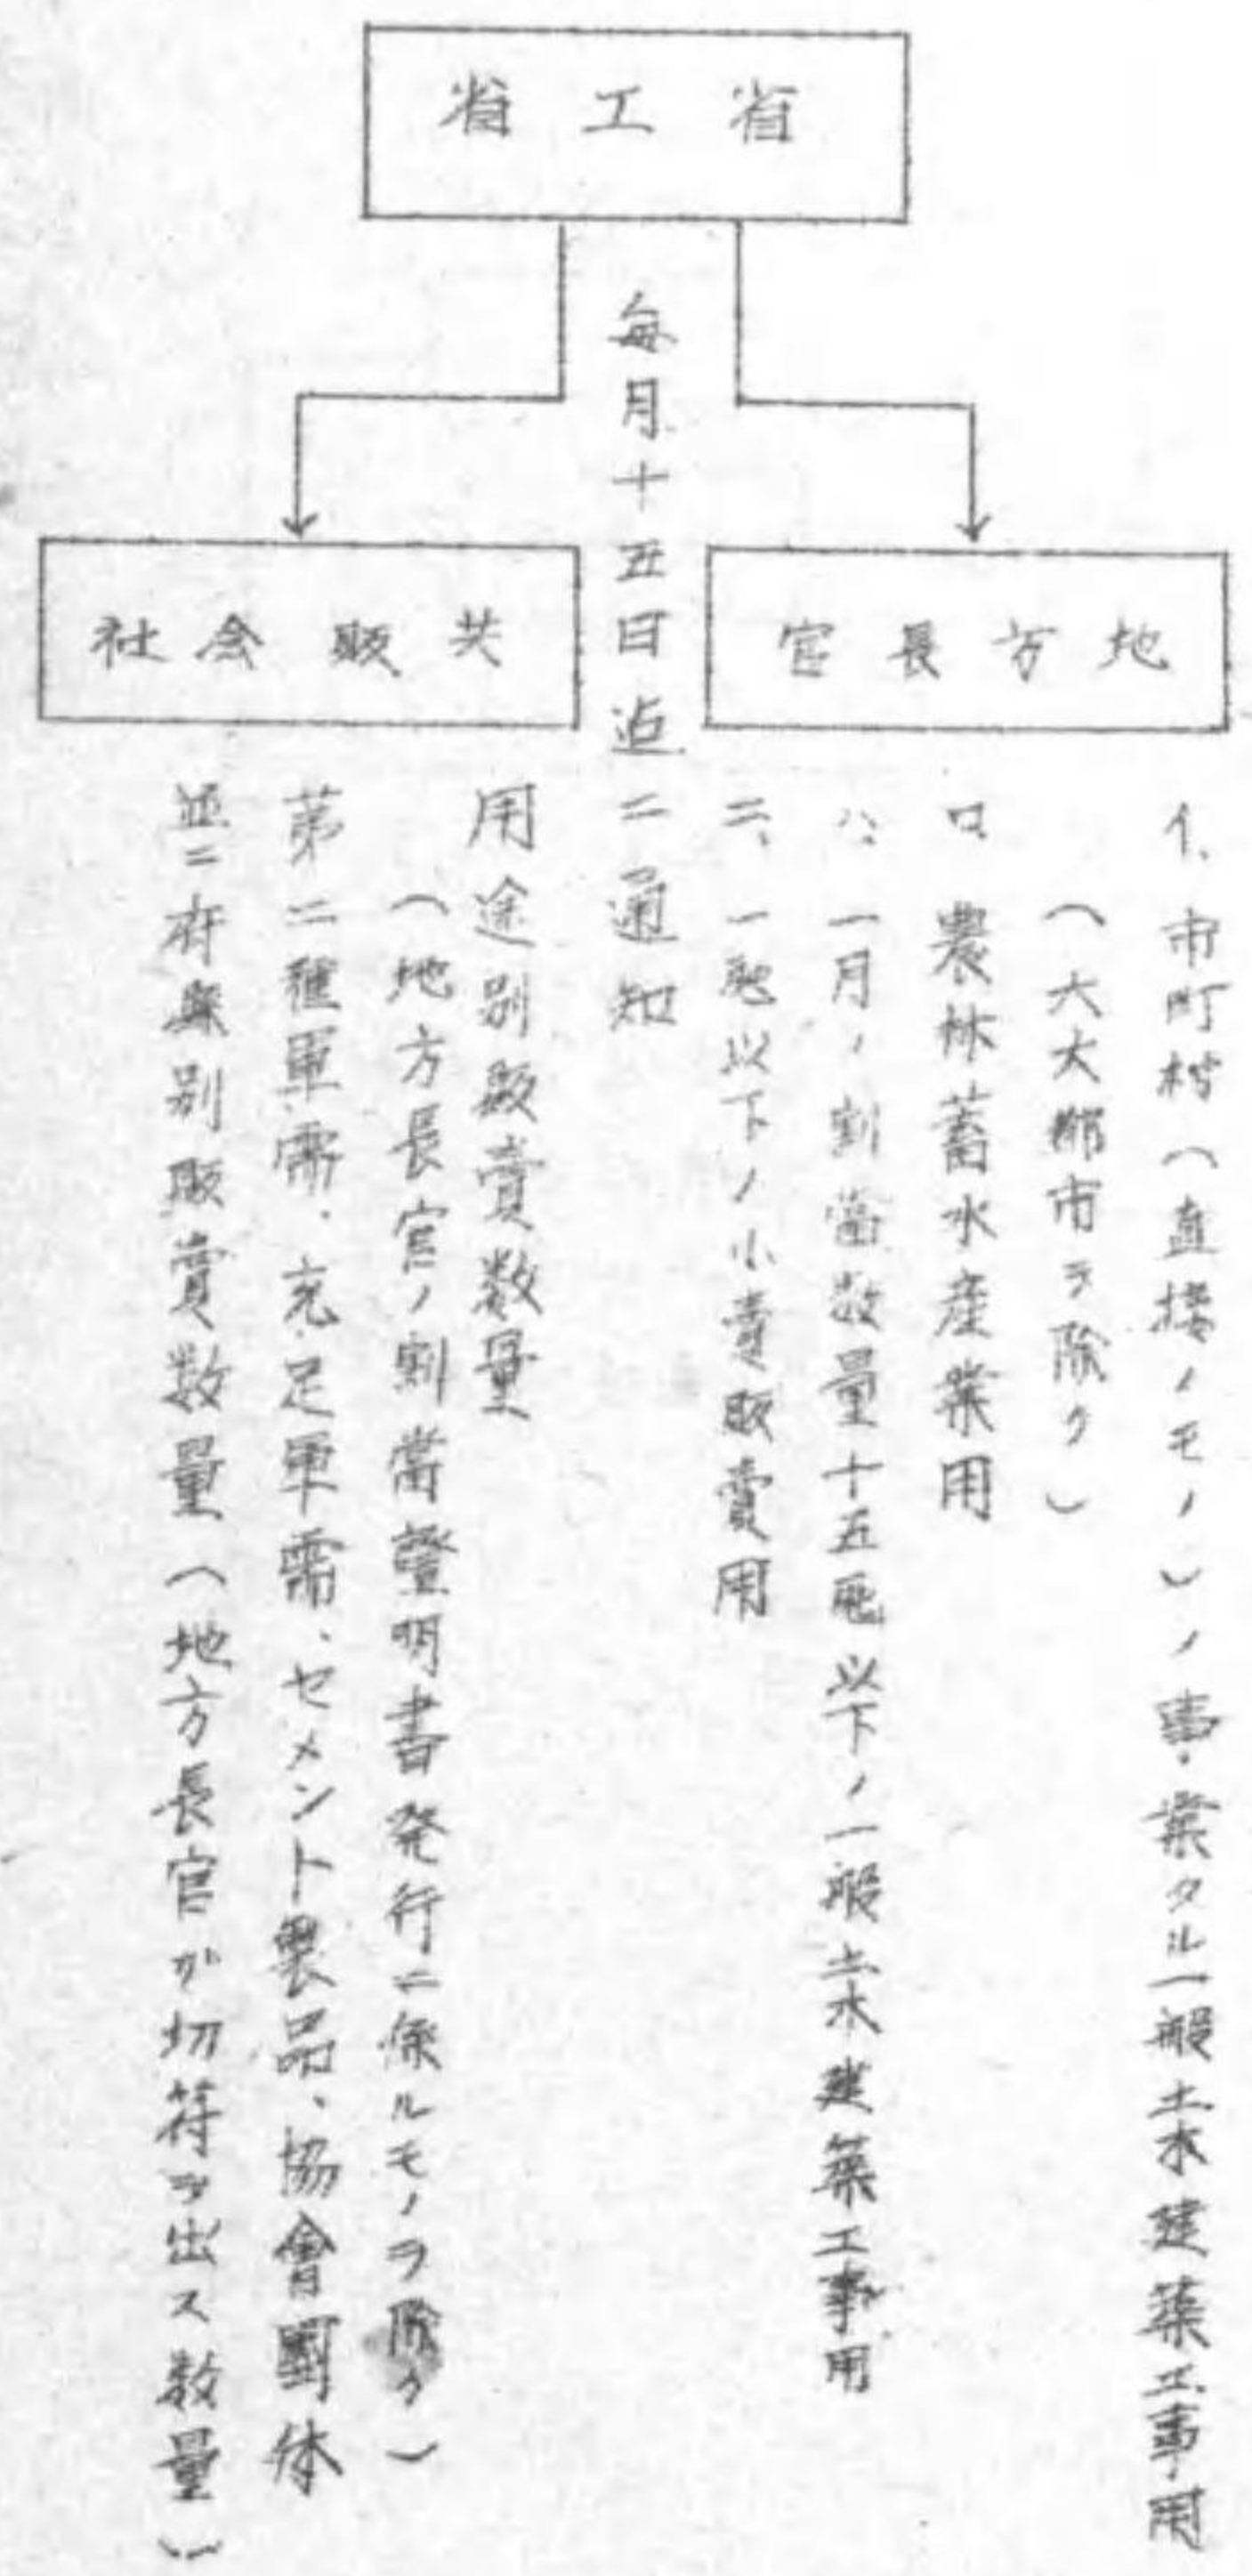 省工省
毎月十五日迠ニ通知
地方長官
イ、市町村(直接ノモノ)ノ事業タル一般土木建築工事用
(六大都市ヲ除ク)
ロ、農林蓄水産業用
ハ、一月ノ割當数量十五瓲以下ノ一般土木建築工事用
ニ、一瓲以下ノ小賣販賣用
共販会社
用途別販賣数量
(地方長官ノ割當證明書発行ニ係ルモノヲ除ク)
第二種軍需、充足軍需、セメント製品、協會團体
並ニ府縣別販賣数量(地方長官ガ切符ヲ出ス数量)